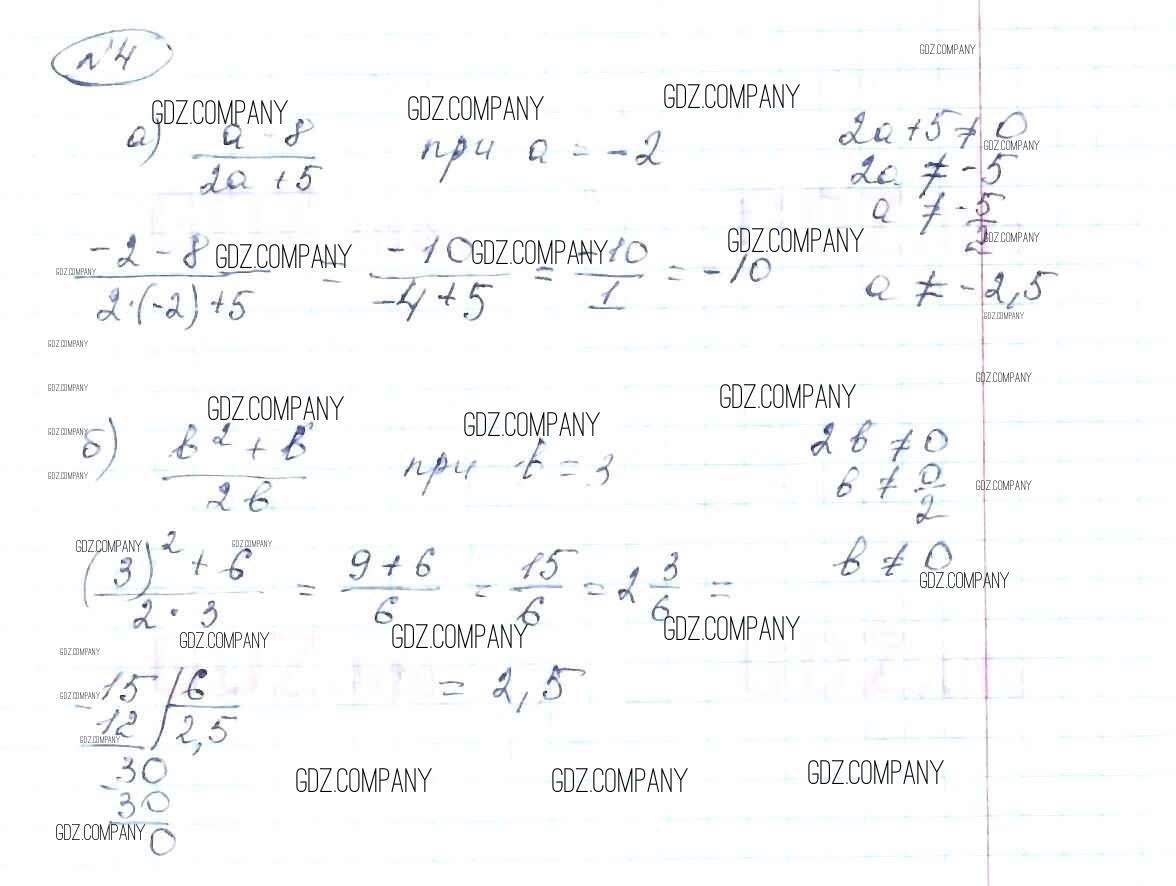 №4
GDZ.COMPANY
GDZ.COMPANY GDZ.COMPANY GDZ.COMPANY
а) (a - 8)/(2a + 5) при a = -2
2a + 5 ≠ 0
GDZ.COMPANY
2a ≠ -5
a ≠ -5/2
GDZ.COMPANY GDZ.COMPANY GDZ.COMPANY GDZ.COMPANY
GDZ.COMPANY
(-2 - 8)/(2·(-2) + 5) = -10/(-4 + 5) = -10/1 = -10
a ≠ -2,5
GDZ.COMPANY
GDZ.COMPANY
GDZ.COMPANY GDZ.COMPANY
GDZ.COMPANY GDZ.COMPANY GDZ.COMPANY
GDZ.COMPANY
б) (b² + b)/(2b) при b = 3
2b ≠ 0
GDZ.COMPANY
b ≠ 0/2
GDZ.COMPANY
GDZ.COMPANY GDZ.COMPANY
((3)² + 6)/(2·3) = (9 + 6)/6 = 15/6 = 2 3/6 =
b ≠ 0
GDZ.COMPANY
GDZ.COMPANY GDZ.COMPANY GDZ.COMPANY
GDZ.COMPANY
= 2,5
GDZ.COMPANY
-15 | 6
12 | 2,5
GDZ.COMPANY
-30
30
0
GDZ.COMPANY GDZ.COMPANY GDZ.COMPANY
GDZ.COMPANY